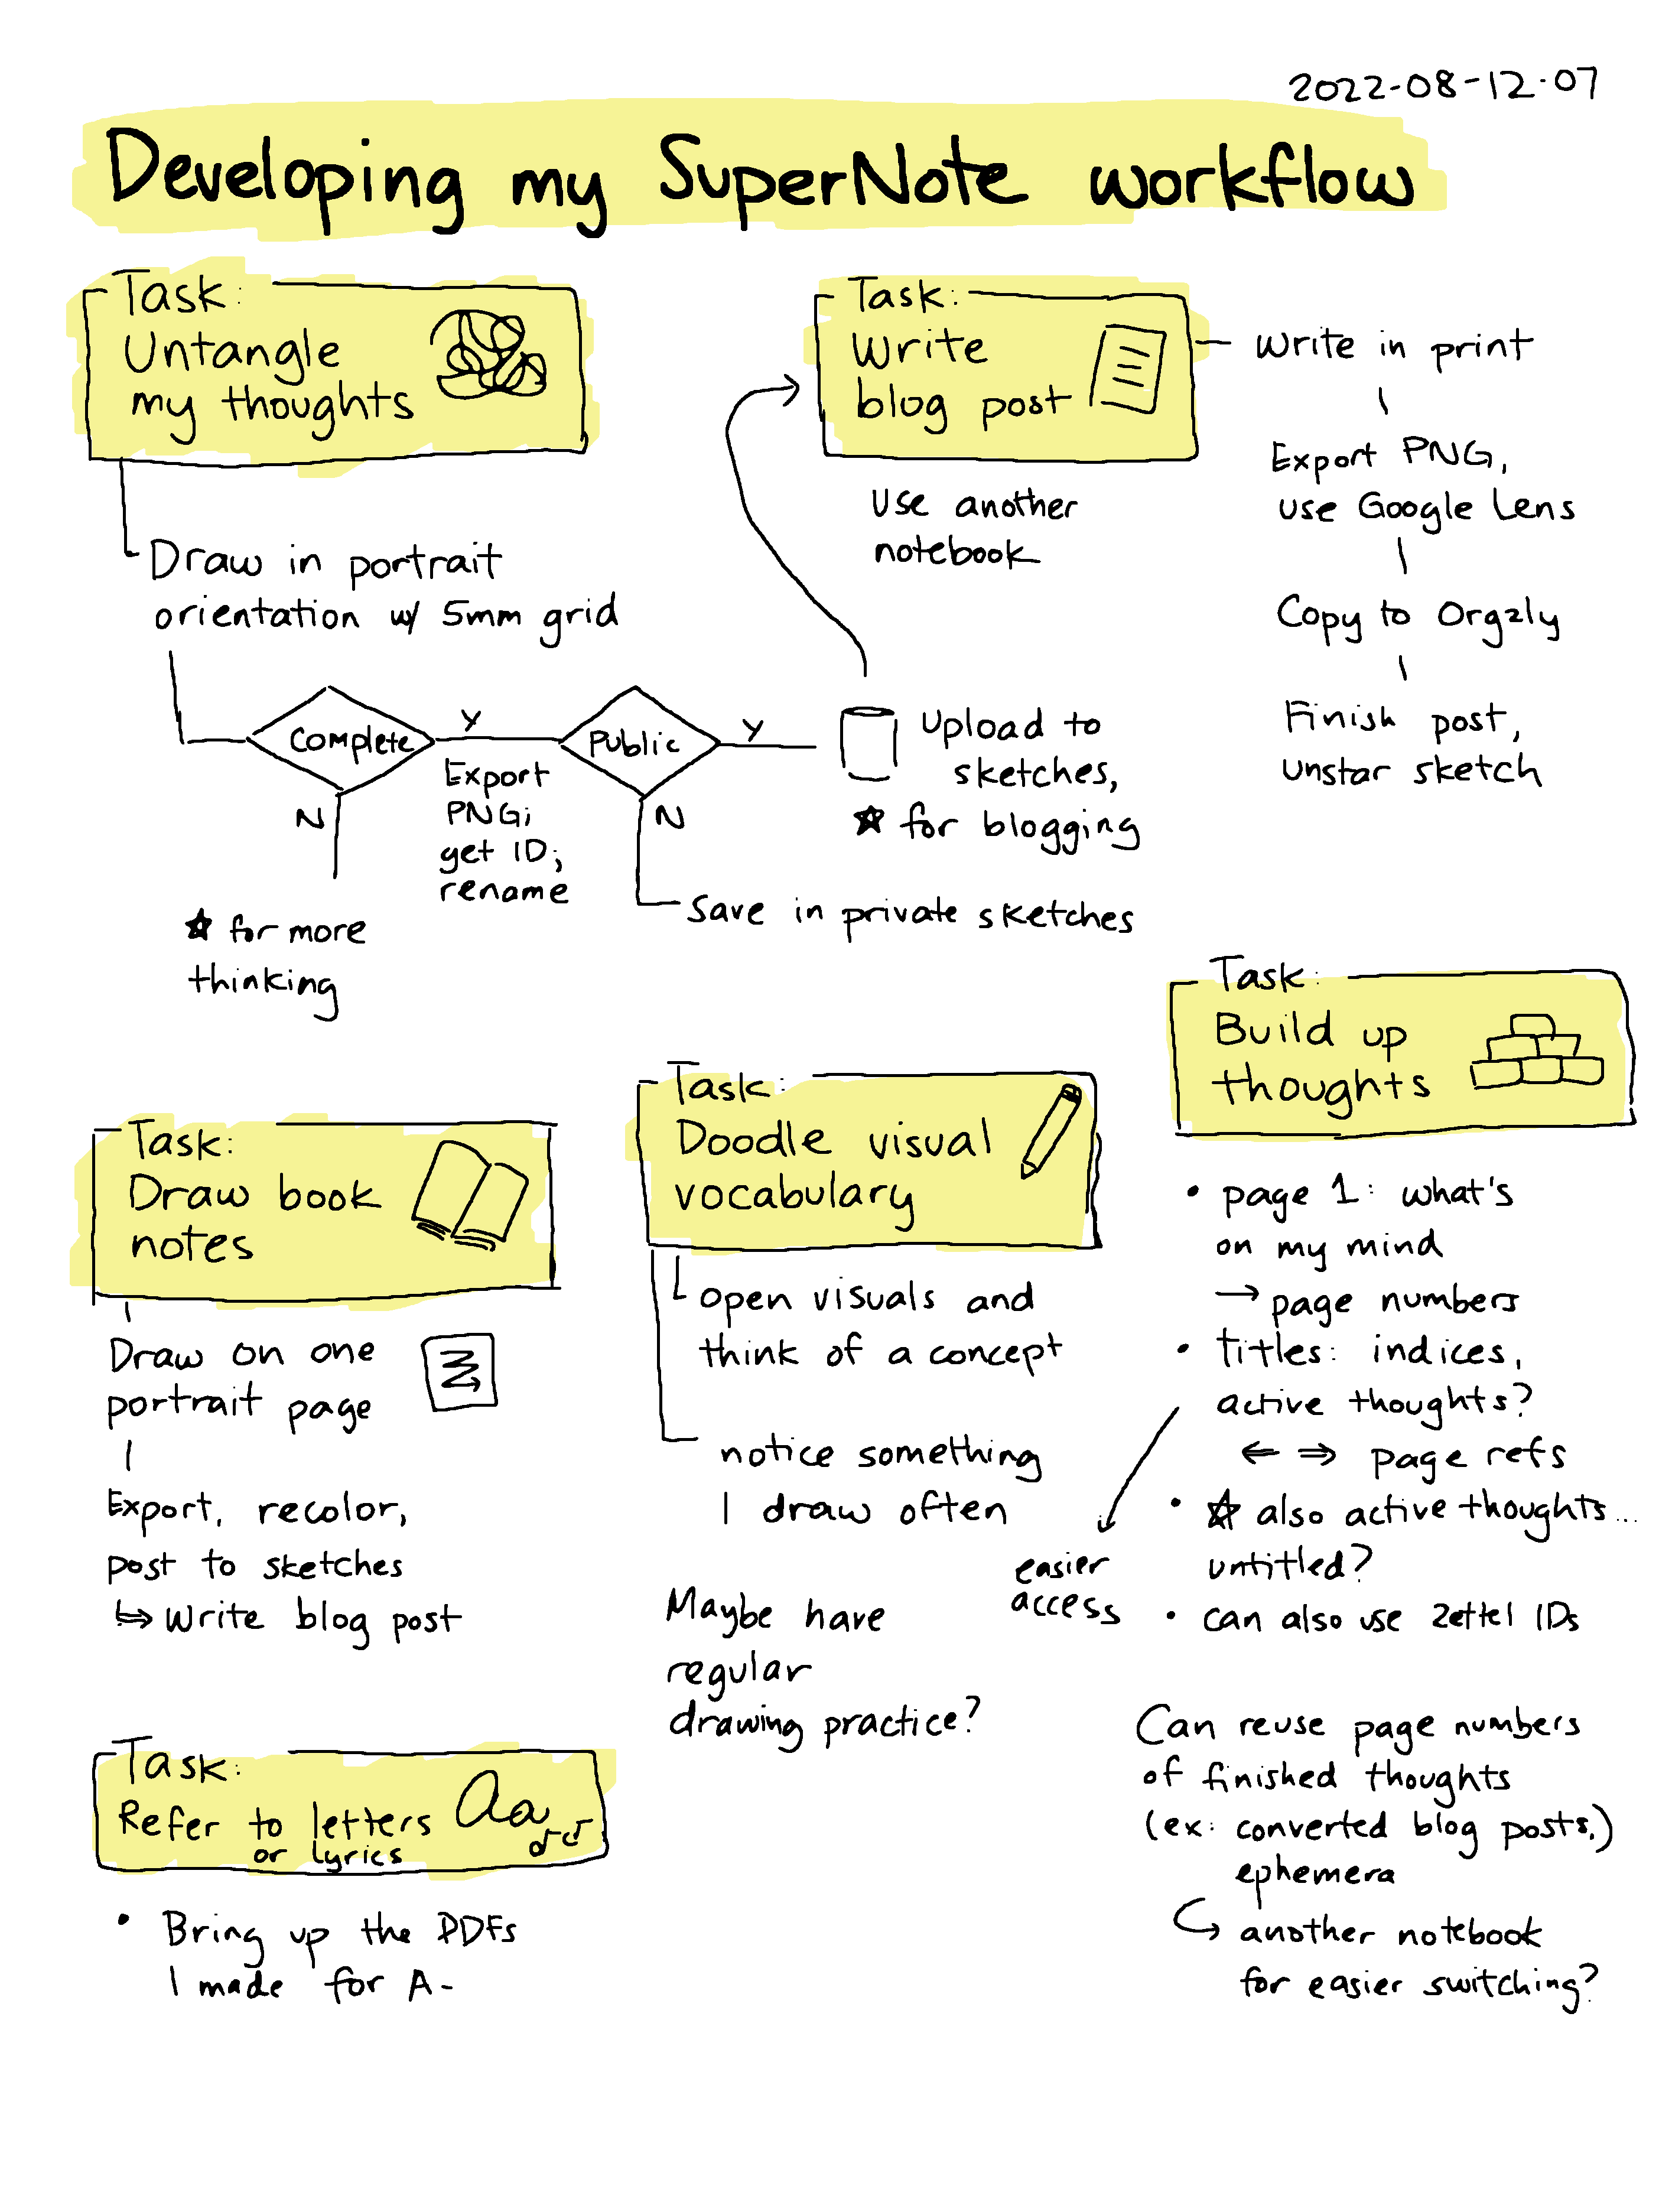 2022-08-12-07
Developing my SuperNote workflow
Task:
Untangle
my thoughts
Draw in portrait
orientation w/ 5mm grid
Complete
Y
N
Export
PNG;
get ID;
rename
☆ for more
thinking
Public
Y
N
Save in private sketches
Upload to
sketches,
☆ for blogging
Task:
Write
blog post
Use another
notebook
Write in print
Export PNG,
use Google Lens
Copy to Orgzly
Finish post,
unstar sketch
Task:
Draw book
notes
Draw on one
portrait page
Export, recolor,
post to sketches
↳ Write blog post
Task:
Doodle visual
vocabulary
open visuals and
think of a concept
notice something
I draw often
Maybe have
regular
drawing practice?
Task:
Build up
thoughts
• page 1: what's
on my mind
→ page numbers
• titles: indices,
active thoughts?
← ⇒ page refs
easier
access
• ☆ also active thoughts...
untitled?
• can also use Zettel IDs
Can reuse page numbers
of finished thoughts
(ex: converted blog posts,)
ephemera
↪ another notebook
for easier switching?
Task:
Refer to letters
or lyrics
Aa
• Bring up the PDFs
I made for A-